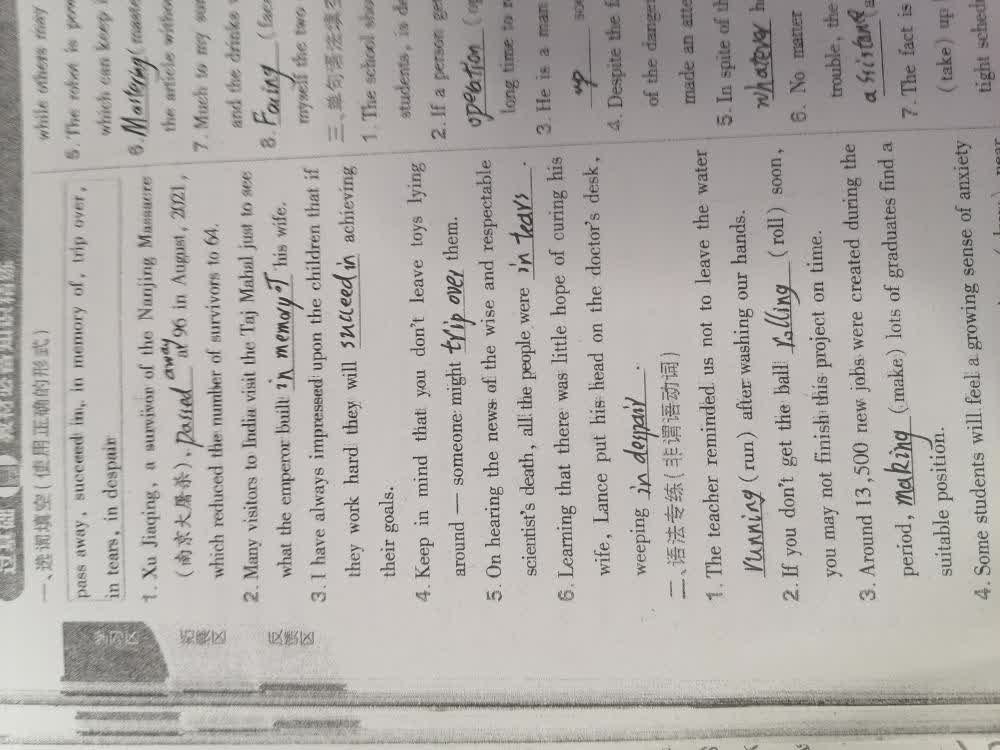 一、选词填空(使用正确的形式)
pass away, succeed in, in memory of, trip over,
in tears, in despair
1. Xu Jiaqing, a survivor of the Nanjing Massacre
(南京大屠杀), passed away at 96 in August, 2021,
which reduced the number of survivors to 64.
2. Many visitors to India visit the Taj Mahal just to see
what the emperor built in memory of his wife.
3. I have always impressed upon the children that if
they work hard they will succeed in achieving
their goals.
4. Keep in mind that you don't leave toys lying
around — someone might trip over them.
5. On hearing the news of the wise and respectable
scientist's death, all the people were in tears.
6. Learning that there was little hope of curing his
wife, Lance put his head on the doctor's desk,
weeping in despair.
二、语法专练(非谓语动词)
1. The teacher reminded us not to leave the water
running (run) after washing our hands.
2. If you don't get the ball rolling (roll) soon,
you may not finish this project on time.
3. Around 13,500 new jobs were created during the
period, making (make) lots of graduates find a
suitable position.
4. Some students will feel a growing sense of anxiety
学习区
拓展区
反馈区
while others may
5. The token is
which can keep
6.
the article
7. Much to my
and the drinks
8. Facing
myself the two
三、单句语法填空
1. The school
students, is
2. If a person
operation
long time to
3. He is a man
up
4. Despite the
of the danger
made an
5. In spite of
whatever
6. No matter
trouble, the
7. The fact is
(take) up
tight